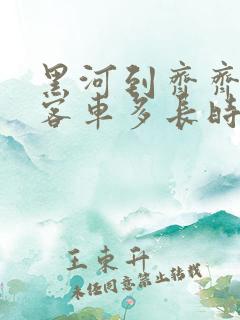 黑河到齐齐
客车多长时
王东升
未经同意禁止转载